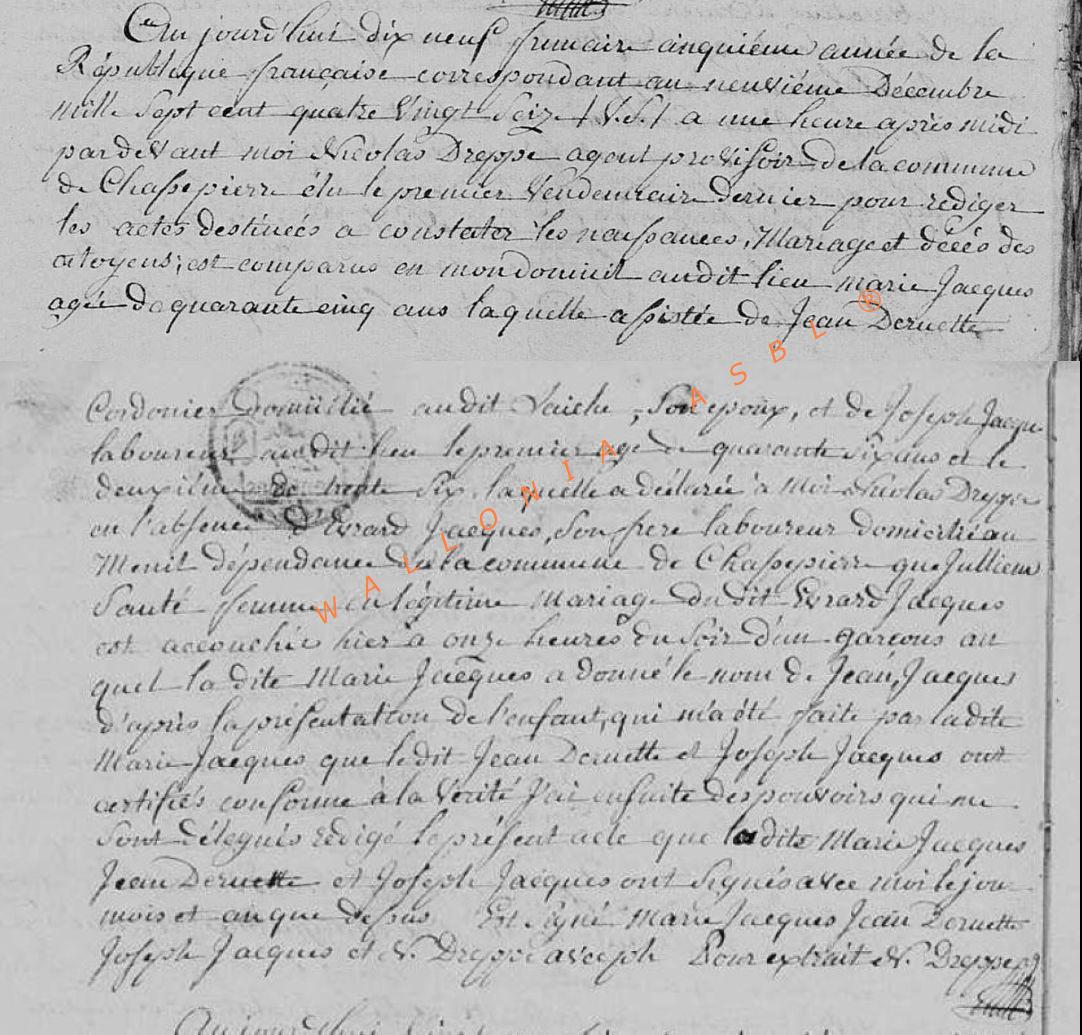 Aujourd'hui dix neuf frimaire cinquiéme année de la
République française correspondant au neuviéme Décembre
mille sept cent quatre vingt seize / V.S./ a une heure après midi
pardevant moi Nicolas Dreppe agent provisoire de la commune
de Chassepierre élu le premier Vendemiaire dernier pour rédiger
les actes destinées a constater les naissances, Mariage et décés des
citoyens; est comparus en mon domicil audit lieu marie Jacques
agée de quarante cinq ans laquelle assistée de Jean Deruette
Cordonier domicilié audit Laiche, Son epoux, et de Joseph Jacques
laboureur audit lieu le premier agé de quarante Six ans et le
deuxiéme de trente Six, laquelle a déclarée à Moi Nicolas Dreppe
en l'absence d'Evrard Jacques, Son frere laboureur domicilié au
Menil dépendance de la commune de Chassepierre que Jullienne
Santé femme en légitime mariage du dit Evrard Jacques
est accouchée hier à onze heures du Soir d'un garçons au
quel la dite Marie Jacques a donné le nom de Jean, Jacques
d'après la présentation de l'enfant, qui m'a été faite par ladite
Marie Jacques que ledit Jean Deruette et Joseph Jacques ont
certifiés conforme à la Vérité J'ai ensuite des pouvoirs qui me
Sont délégués rédigé le présent acte que ladite Marie Jacques
Jean Deruette et Joseph Jacques ont Signés avec moi le jour
mois et an que dessus Est Signé Marie Jacques Jean Deruette
Joseph Jacques et N. Dreppe Pour extrait N. Dreppe
Aujourd'hui
WALLONIA ASBL ®